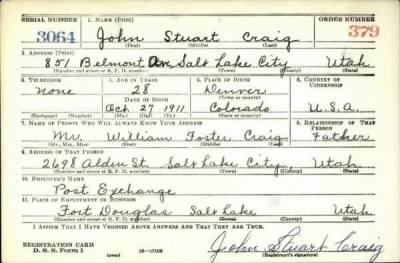 SERIAL NUMBER 1. NAME (Print) ORDER NUMBER
3064 John Stuart Craig 379
(First) (Middle) (Last)
2. ADDRESS (Print)
851 Belmont Ave Salt Lake City Utah
(Number and street or R. F. D. number) (Town) (County) (State)
3. TELEPHONE 4. AGE IN YEARS 5. PLACE OF BIRTH 6. COUNTRY OF CITIZENSHIP
None 28 Denver
DATE OF BIRTH (Town or county)
Oct 27 1911 Colorado U.S.A.
(Exchange) (Number) (Mo.) (Day) (Yr.) (State or country)
7. NAME OF PERSON WHO WILL ALWAYS KNOW YOUR ADDRESS 8. RELATIONSHIP OF THAT PERSON
Mr. William Foster Craig Father
(Mr., Mrs., Miss) (First) (Middle) (Last)
9. ADDRESS OF THAT PERSON
2698 Alden St. Salt Lake City, Utah
(Number and street or R. F. D. number) (Town) (County) (State)
10. EMPLOYER'S NAME
Post Exchange
11. PLACE OF EMPLOYMENT OR BUSINESS
Fort Douglas Salt Lake Utah
(Number and street or R. F. D. number) (Town) (County) (State)
I AFFIRM THAT I HAVE VERIFIED ABOVE ANSWERS AND THAT THEY ARE TRUE.
REGISTRATION CARD
D. S. S. Form 1 (over) John Stuart Craig
(Registrant's signature)